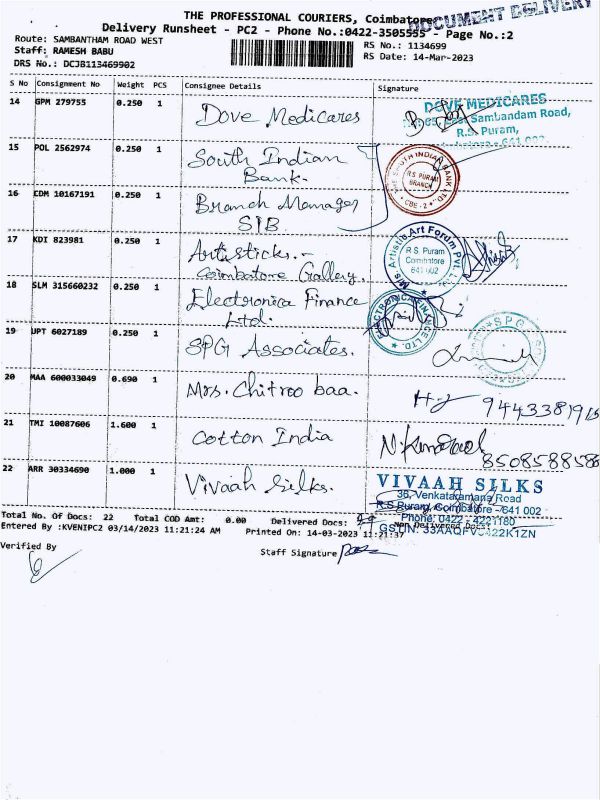 THE PROFESSIONAL COURIERS, Coimbatore
DOCUMENT DELIVERY
Delivery Runsheet - PC2 - Phone No.:0422-3505555 - Page No.:2
Route: SAMBANTHAM ROAD WEST
RS No.: 1134699
Staff: RAMESH BABU
RS Date: 14-Mar-2023
DRS No.: DCJB113469902
S No Consignment No Weight PCS Consignee Details Signature
14 GPM 279755 0.250 1 Dove Medicares
DOVE MEDICARES
Sambandam Road,
R.S. Puram,
641 002
15 POL 2562974 0.250 1 South Indian
Bank.
THE SOUTH INDIAN BANK LTD.
R.S. PURAM
BRANCH
CBE-2
16 CDM 10167191 0.250 1 Branch Manager
SIB
17 KDI 823981 0.250 1 Artisticks.-
Coimbatore Gallery.
M/s Artistic Art Forum Pvt. L
R S. Puram
Coimbatore
641 002
18 SLM 315660232 0.250 1 Electronica Finance
Ltd.
ELECTRONICA FINANCE LTD.
19 UPT 6027189 0.250 1 SPG Associates.
SPG
20 MAA 600033049 0.690 1 Mrs. Chitroo baa.
21 TMI 10087606 1.600 1 Cotton India
850858858
22 ARR 30334690 1.000 1 Vivaah Silks.
VIVAAH SILKS
36, Venkataramana Road
R.S Puram, Coimbatore - 641 002
Phone: 0422 - 4221180
Total No. Of Docs: 22 Total COD Amt: 0.00 Delivered Docs: Non Delivered Docs:
Entered By :KVENIPC2 03/14/2023 11:21:24 AM Printed On: 14-03-2023 11:21:37
Verified By
Staff Signature